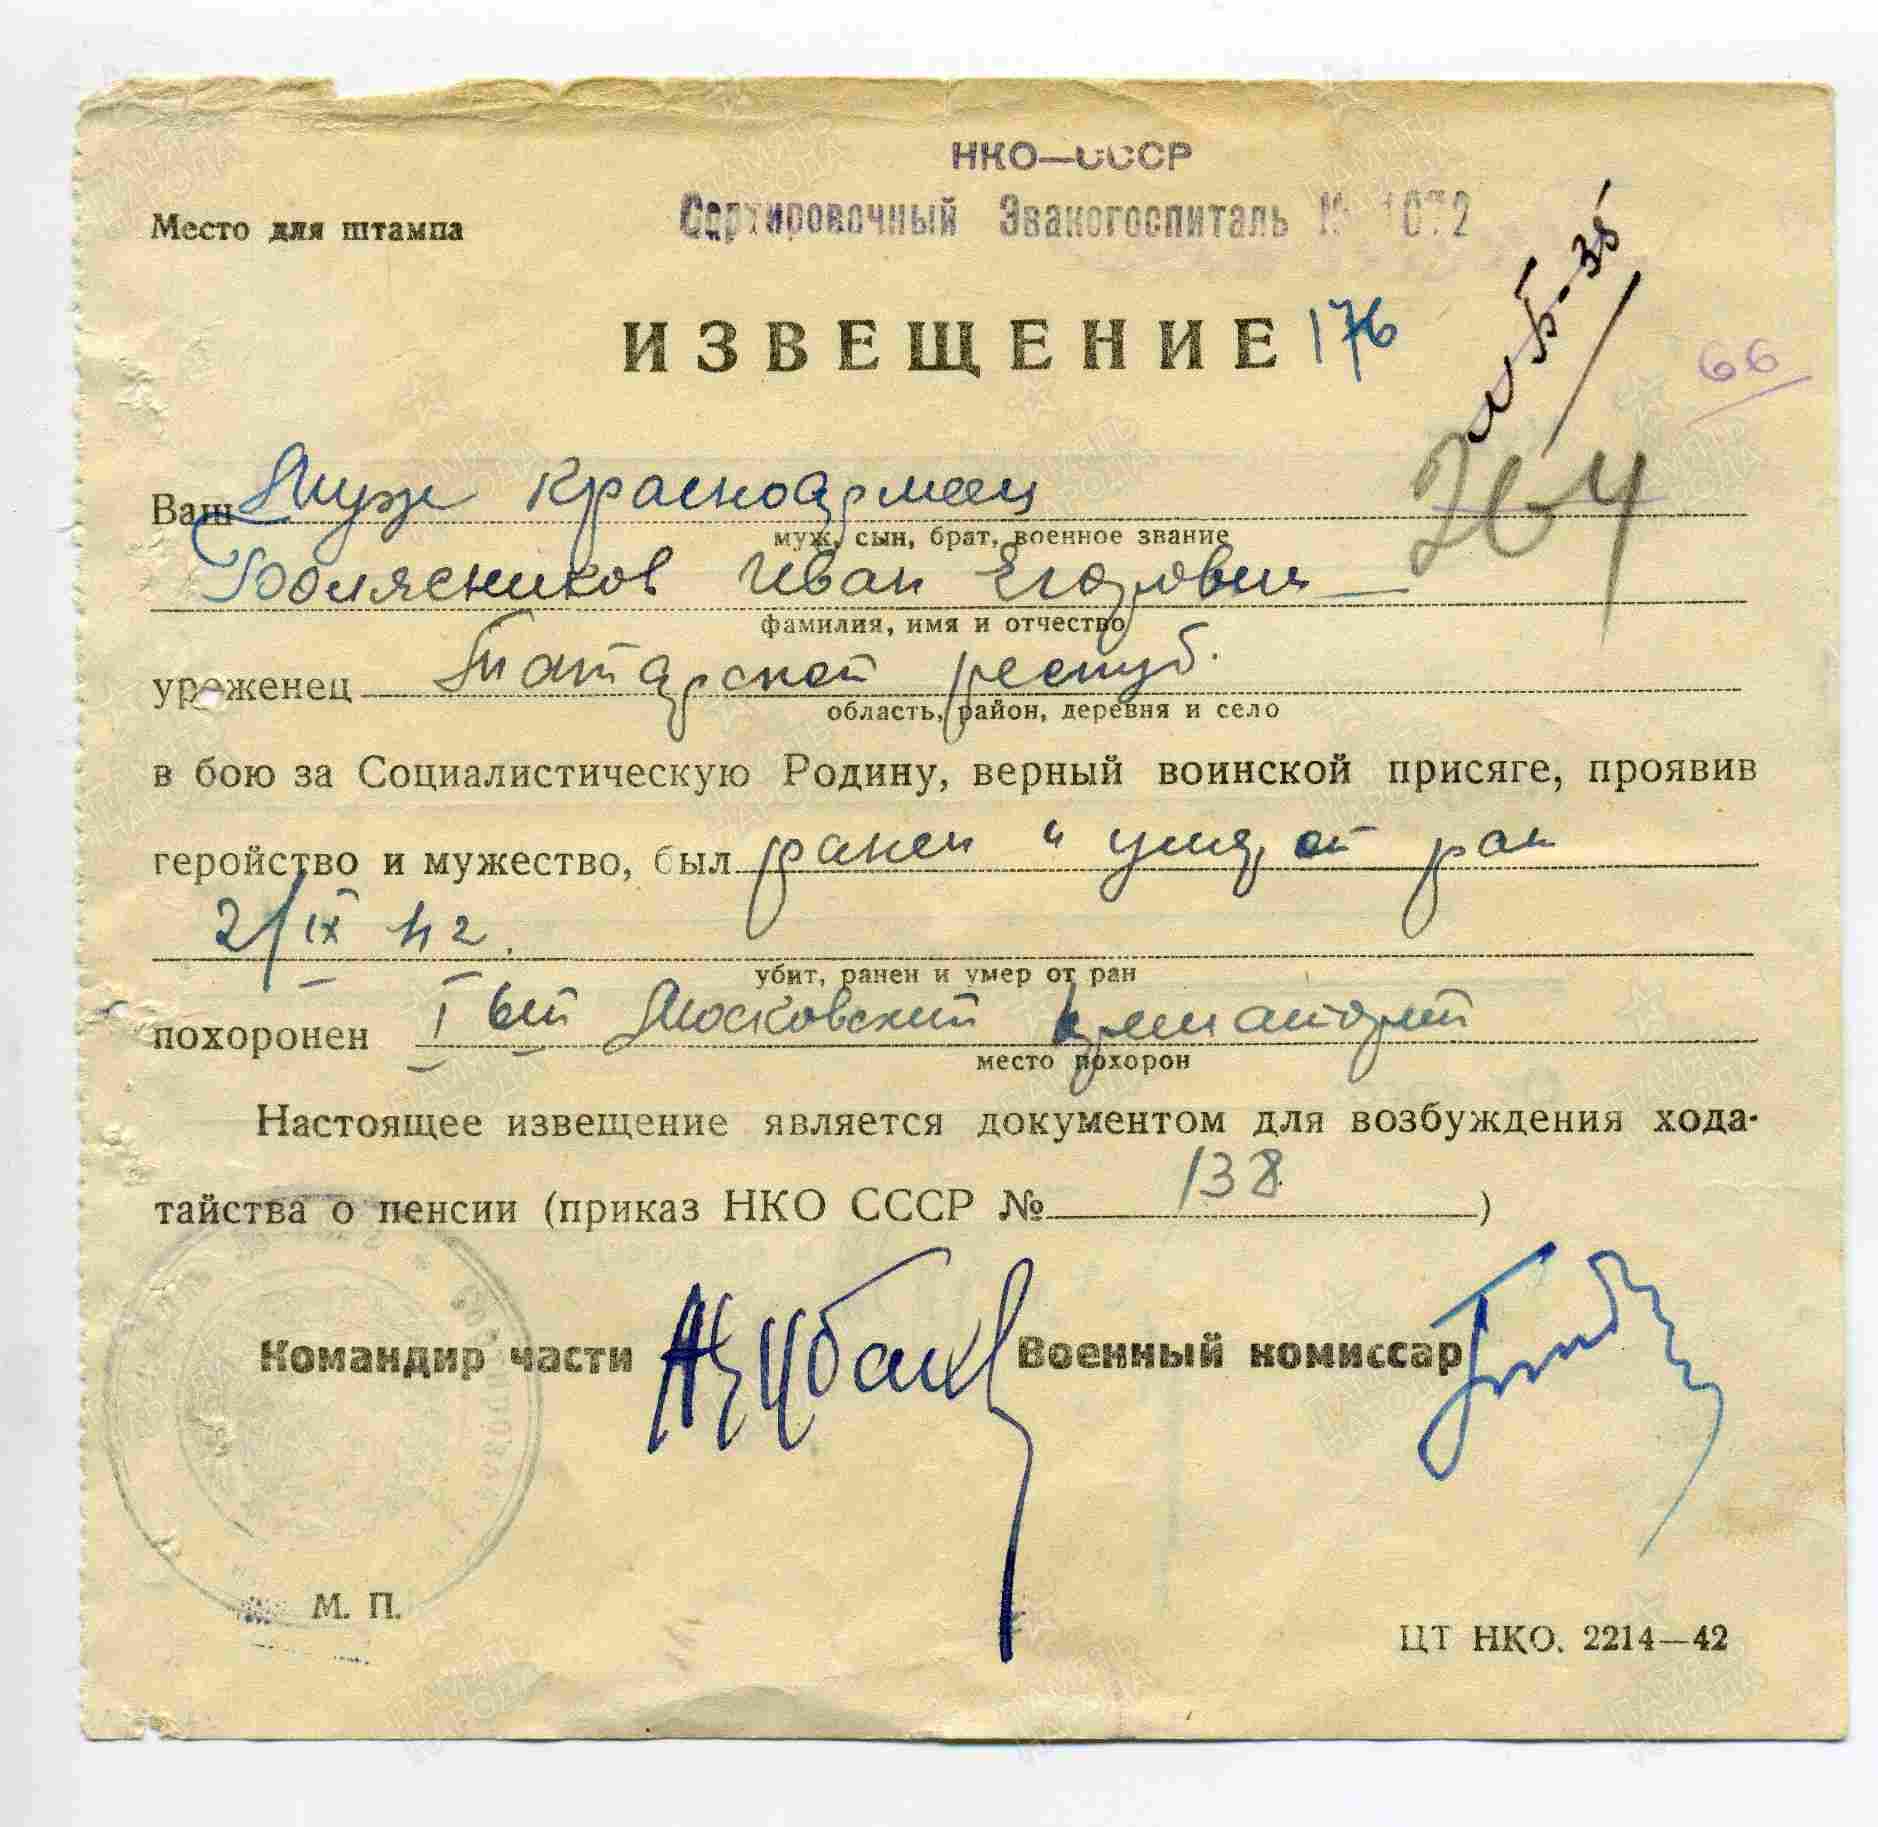 НКО—СССР
Место для штампа
Сортировочный Эвакогоспиталь № 1072
ИЗВЕЩЕНИЕ 176
66
264
Ваш муж красноармеец
муж, сын, брат, военное звание
Иван Егорович
фамилия, имя и отчество
уроженец Татарской респуб.
область, район, деревня и село
в бою за Социалистическую Родину, верный воинской присяге, проявив
геройство и мужество, был ранен и умер от ран
2/IX 42.
убит, ранен и умер от ран
похоронен I ый Московский крематорий
место похорон
Настоящее извещение является документом для возбуждения хода-
тайства о пенсии (приказ НКО СССР № 138)
Командир части Военный комиссар
М. П.
ЦТ НКО. 2214—42